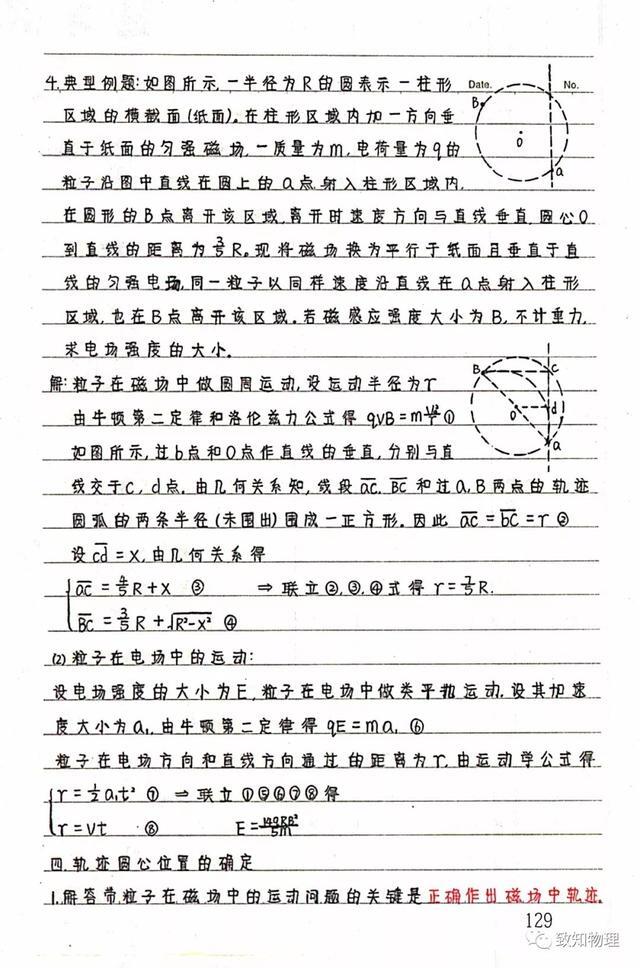 Date.
No.
4.典型例题:如图所示,一半径为R的圆表示一柱形
区域的横截面(纸面)。在柱形区域内加一方向垂
直于纸面的匀强磁场,一质量为m,电荷量为q的
粒子沿图中直线在圆上的a点射入柱形区域内,
在圆形的B点离开该区域,离开时速度方向与直线垂直,圆心O
到直线的距离为3/5R。现将磁场换为平行于纸面且垂直于直
线的匀强电场,同一粒子以同样速度沿直线在a点射入柱形
区域,也在B点离开该区域。若磁感应强度大小为B,不计重力,
求电场强度的大小。
B
O
a
解:粒子在磁场中做圆周运动,设运动半径为r
由牛顿第二定律和洛伦兹力公式得 qVB=mV²/r ①
如图所示,过b点和O点作直线的垂直,分别与直
线交于c,d点。由几何关系知,线段ac,BC和过a,B两点的轨迹
圆弧的两条半径(未围出)围成一正方形。因此 ac=bc=r ②
设cd=x,由几何关系得
ac=4/5R+x ③ ⇒联立②,③,④式得r=7/5R.
BC=3/5R+√R²-x² ④
B
C
O
d
a
(2)粒子在电场中的运动:
设电场强度的大小为E,粒子在电场中做类平抛运动.设其加速
度大小为a,由牛顿第二定律得qE=ma, ⑥
粒子在电场方向和直线方向通过的距离为r.由运动学公式得
r=1/2a₁t² ⑦ ⇒联立①⑤⑥⑦⑧得
r=vt ⑧ E=14qRB²/5m
四.轨迹圆心位置的确定
1.解答带粒子在磁场中的运动问题的关键是正确作出磁场中轨迹.
129
致知物理